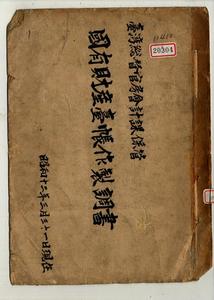 臺灣總督官房會計課保管
國有財産臺帳作製調書
昭和十二年三月三十一日現在
20304